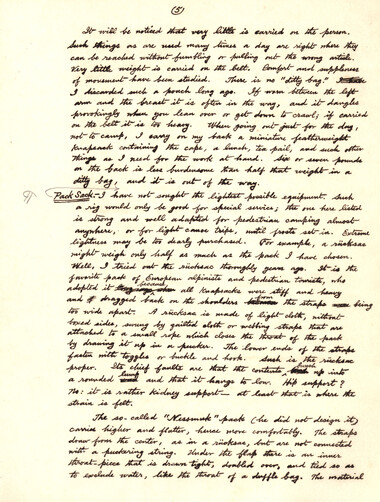 (5)
It will be noticed that very little is carried on the person.
Such things as are used many times a day are right where they
can be reached without fumbling or pulling out the wrong article.
Very little weight is carried on the belt. Comfort and suppleness
of movement have been studied. There is no "ditty bag."
I discarded such a pouch long ago. If worn between the left
arm and the breast it is often in the way, and it dangles
provokingly when you lean over or get down to crawl; if carried
on the belt it is too heavy. When going out just for the day,
not to camp, I carry on my back a miniature featherweight
knapsack containing the cape, a lunch, tea pail, and such other
things as I need for the work at hand. Six or seven pounds
on the back is less burdensome than half that weight in a
ditty bag, and it is out of the way.
¶ Pack Sack.- I have not sought the lightest possible equipment. Such
a rig would only be good for special service; the one here listed
is strong and well adapted for pedestrian camping almost
anywhere, or for light canoe trips, until frosts set in. Extreme
lightness may be too dearly purchased. For example, a rücksac
might weigh only half as much as the pack I have chosen.
Well, I tried out the rücksac thoroughly years ago. It is the
favorite pack of European alpinists and pedestrian tourists, who
adopted it because all knapsacks were stiff and heavy
and dragged back on the shoulders from the straps being
too wide apart. A rücksac is made of light cloth, without
boxed sides, swung by quilted cloth or webbing straps that are
attached to a small rope which closes the throat of the pack
by drawing it up in a pucker. The lower ends of the straps
fasten with toggles or buckle and hook. Such is the rücksac
proper. Its chief faults are that the contents up into
a rounded lump and that it hangs too low. Hip support?
No: it is rather kidney support — at least that is where the
strain is felt.
The so-called "Nessmuk" pack (he did not design it)
carries higher and flatter, hence more comfortably. The straps
draw from the center, as in a rücksac, but are not connected
with a puckering string. Under the flap there is an inner
throat-piece that is drawn tight, doubled over, and tied so as
to exclude water, like the throat of a duffle bag. The material